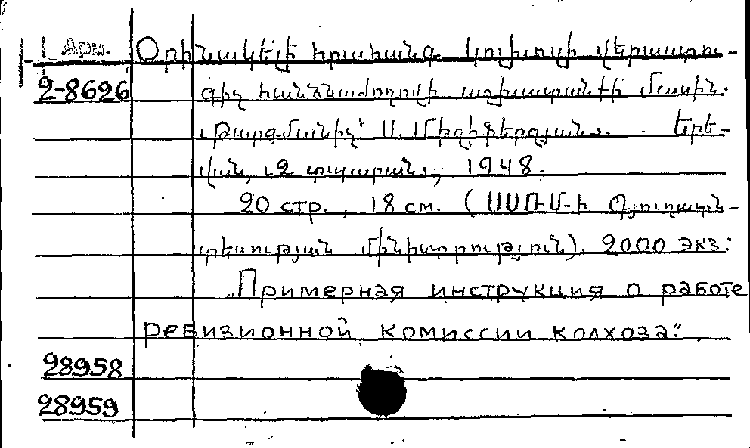 Арм.
Օրինակելի հրահանգ կոլխոզի վերստու-
2-8626 գիչ հանձնաժողովի աշխատանքի մասին.
Թարգմանիչ՝ Ա. Երե-
վան, 2 տպարան, 1948.
20 стр., 18 см. (ՍՍՌՄ-ի Գյուղատն-
տեսության մինիստրություն), 2000 экз:
"Примерная инструкция о работе
ревизионной комиссии колхоза":
28958
28959